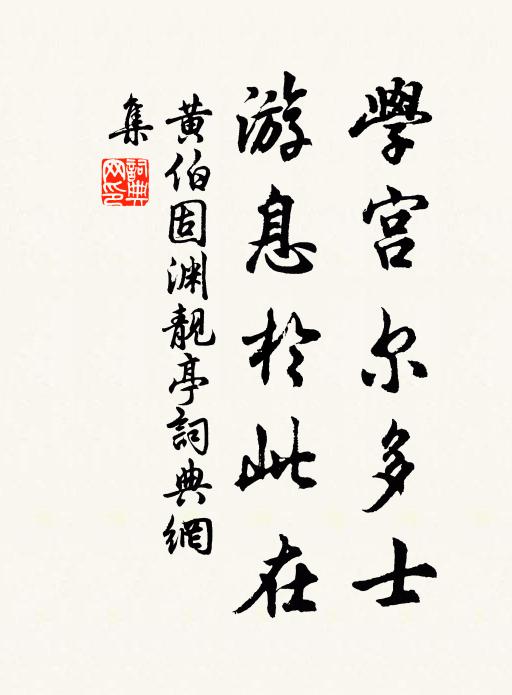 學宮尔多士
游息於此在
黄伯固渊靓亭詞典網
集
詞典网印